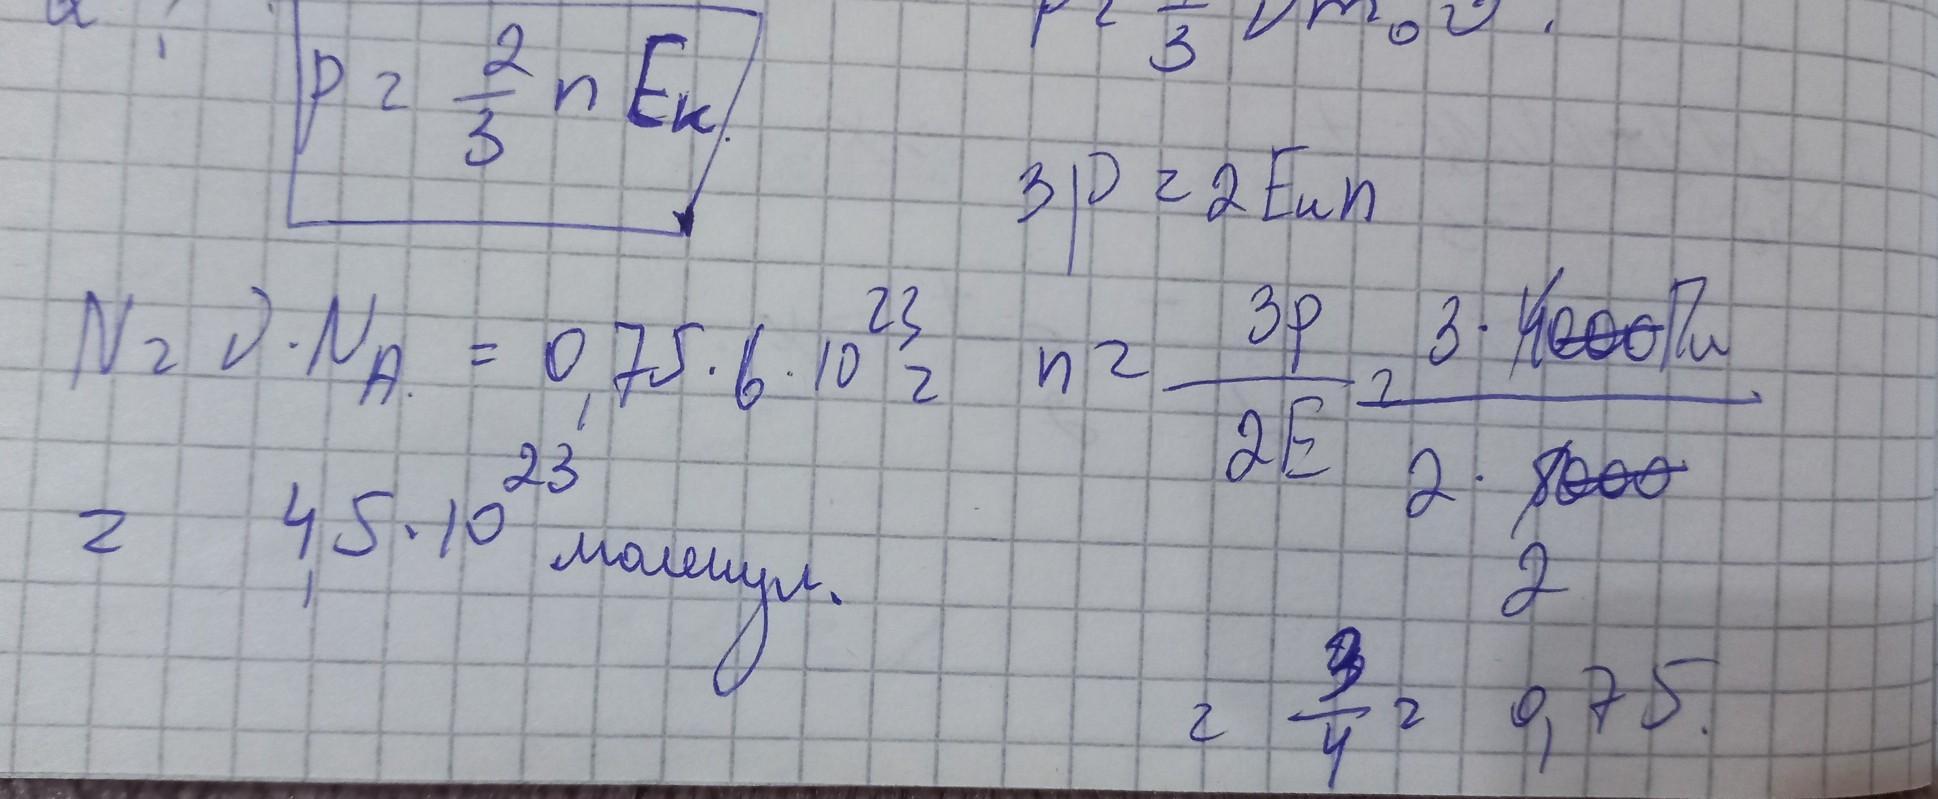 p = 2/3 n Eк.
3p = 2Eкn
N = ν·NA = 0,75·6·10²³ =
= 4,5·10²³ молекул.
n = 3p/2E = 3·4000Па/2·8000
2
= 3/4 = 0,75.